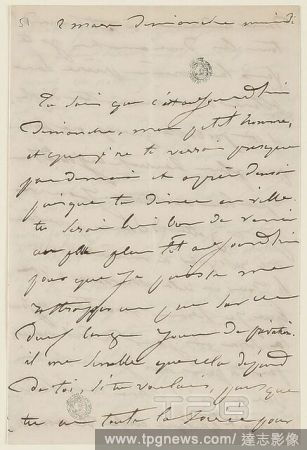 2 mars Dimanche midi
Tu sais que c'est aujourd'hui
Dimanche, mon petit homme,
et que je ne te verrai presque
pas demain et après demain
puisque tu dines en ville.
tu serais bien bon de venir
plus tôt aujourd'hui
pour que je puisse me
rattrapper un peu sur ces
deux longs jours de privation.
il me semble que cela dépend
de toi, si tu voulais, puisque
tu as toute la soirée pour
TPG
www.tpgnews.com / 達志影像